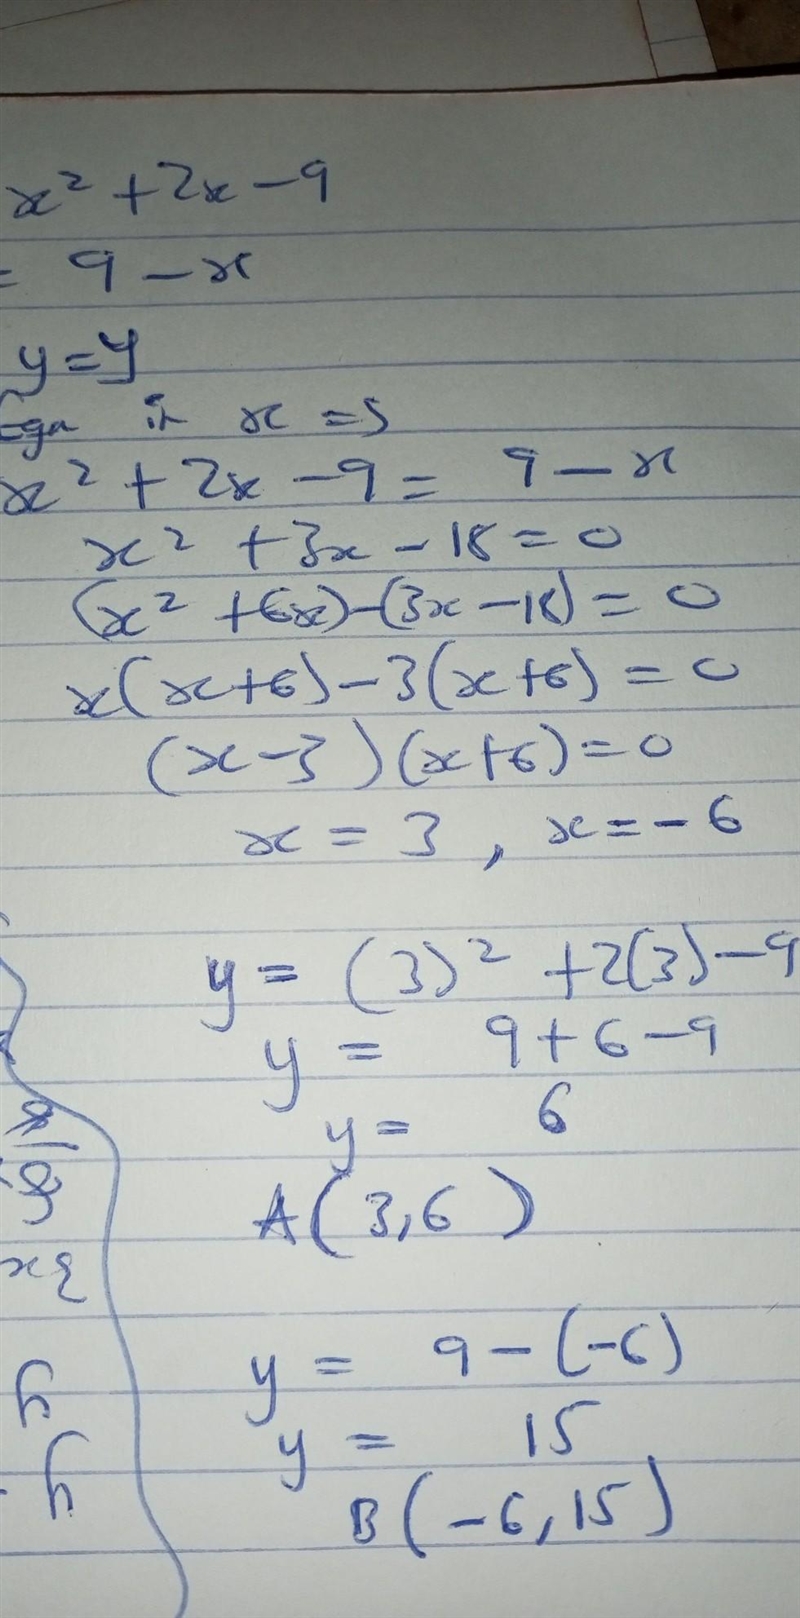 x² + 2x - 9
= 9 - x
y = y
in x = 5
x² + 2x - 9 = 9 - x
x² + 3x - 18 = 0
(x² + 6x) - (3x - 18) = 0
x(x+6) - 3(x+6) = 0
(x-3)(x+6) = 0
x = 3 , x = -6
y = (3)² + 2(3) - 9
y = 9 + 6 - 9
y = 6
A(3,6)
y = 9 - (-6)
y = 15
B(-6,15)